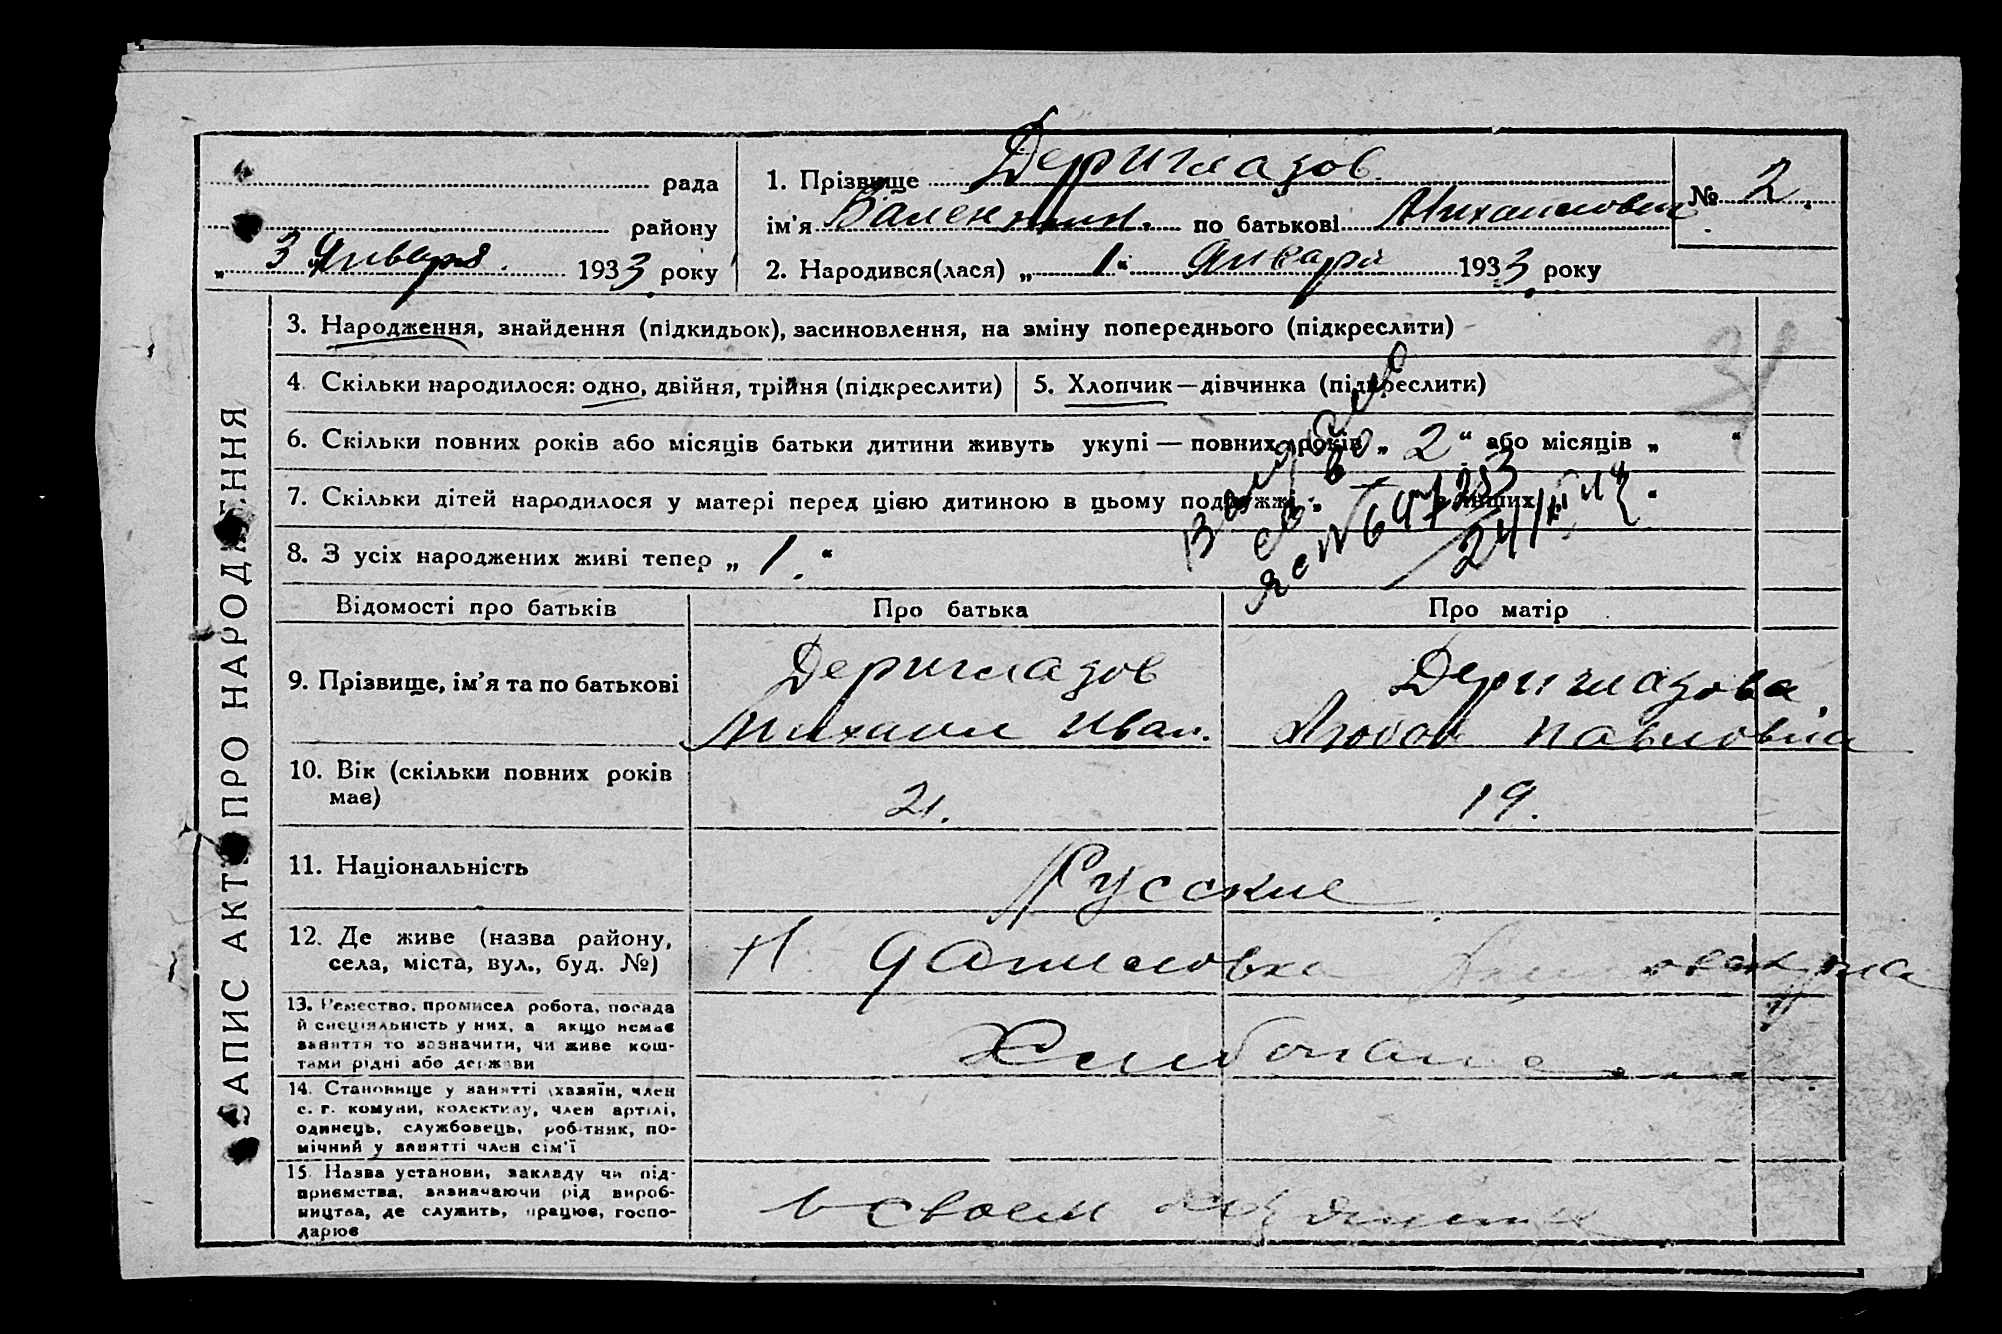 рада
району
„ 3 " Января 1933 року
1. Прізвище Дериглазов
ім'я Валентин. по батькові Михайлович
№ 2.
2. Народився(лася) „ 1 " Января 1933 року
ЗАПИС АКТУ ПРО НАРОДЖЕННЯ
3. Народження, знайдення (підкидьок), засиновлення, на зміну попереднього (підкреслити)
4. Скільки народилося: одно, двійня, трійня (підкреслити)
5. Хлопчик — дівчинка (підкреслити)
6. Скільки повних років або місяців батьки дитини живуть укупі — повних років „ 2 " або місяців „ "
7. Скільки дітей народилося у матері перед цією дитиною в цьому подружжі „ — інших
8. З усіх народжених живі тепер „ 1. "
Відомості про батьків
Про батька
Про матір
9. Прізвище, ім'я та по батькові
Дериглазов
Михаил Иван.
Дериглазова
Любов Павловна
10. Вік (скільки повних років
має)
21.
19.
11. Національність
Русские
12. Де живе (назва району,
села, міста, вул., буд. №)
Н. Даниловка
13. Ремество, промисел робота, посада
й спеціяльність у них, а якщо немає
заняття то зазначити, чи живе кош-
тами рідні або держави
Хлибопаш
14. Становище у занятті (хазяїн, член
с. г. комуни, колективу, член артілі,
одинець, службовець, робітник, по-
мічний у занятті член сім'ї
15. Назва установи, закладу чи під-
приємства, зазначаючи рід вироб-
ництва, де служить, працює, госпо-
дарює
в своем